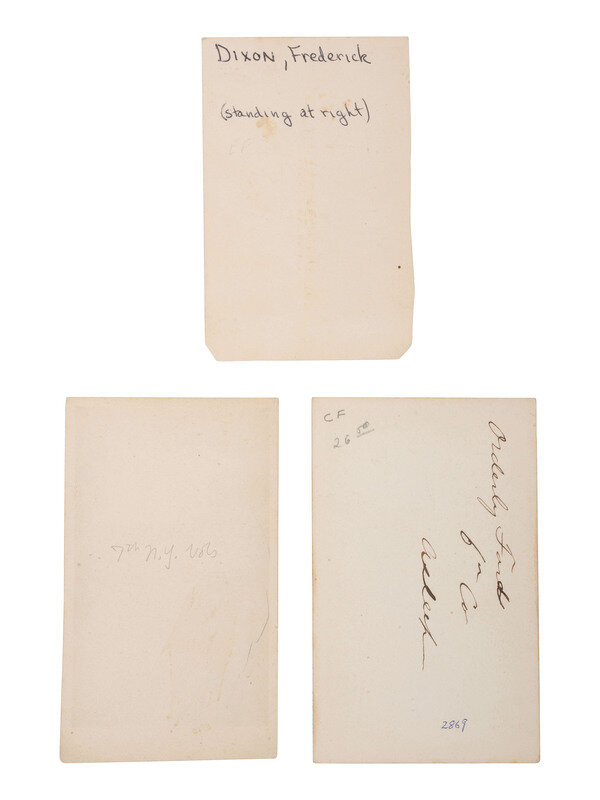 DIXON, Frederick
(standing at right)
CF
7th N.Y. Vols.
CF
26 50
Orderly Ford
6th Co
Asleep
2869